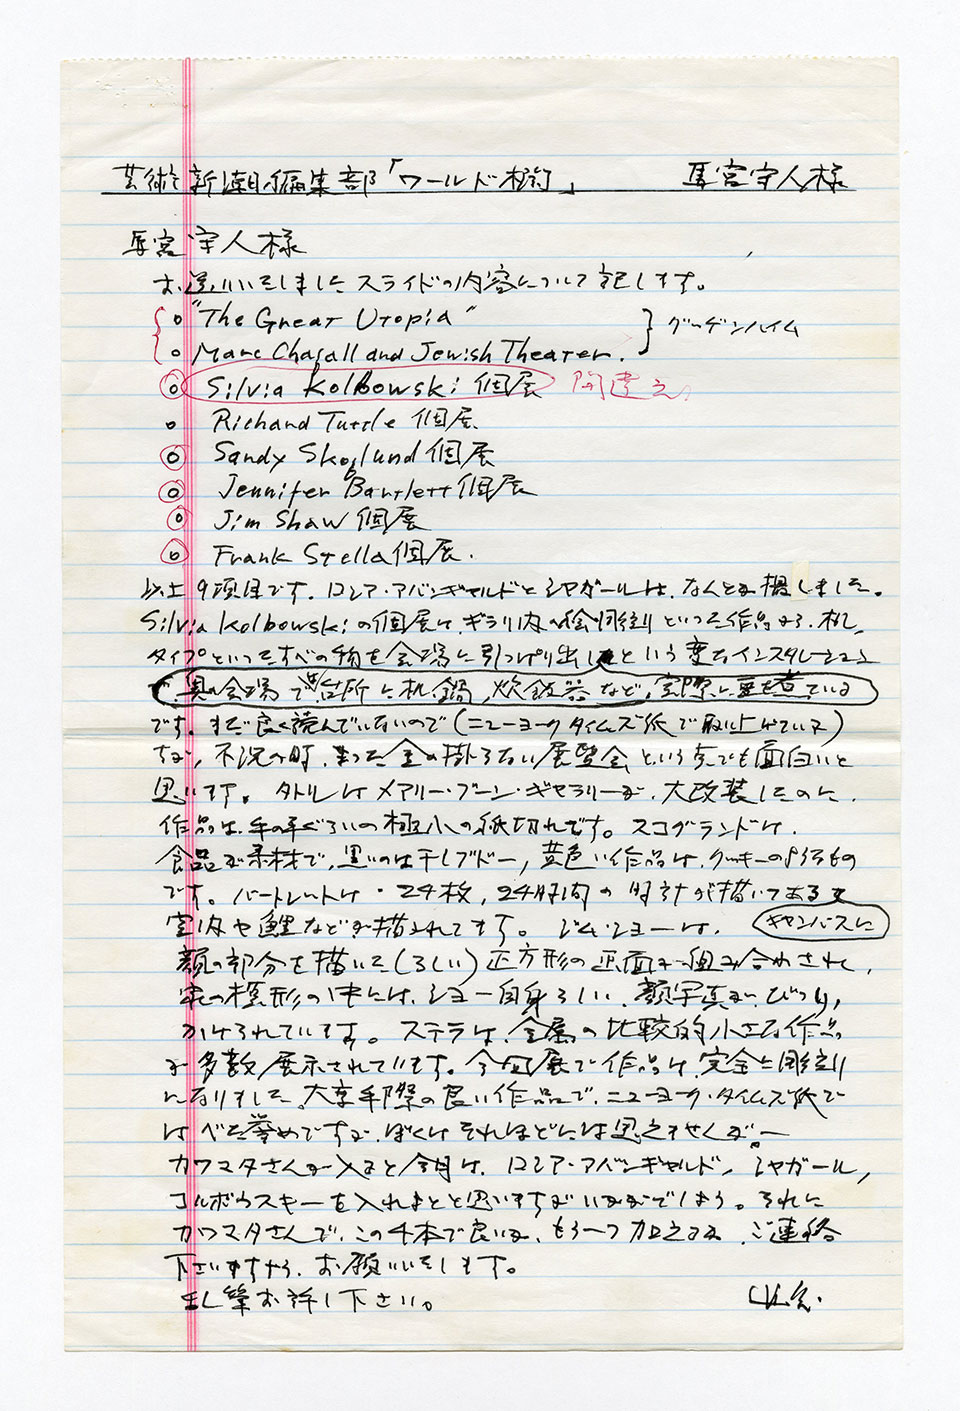 芸術新潮編集部「ワールド欄」 馬宮守人様
馬宮守人様
お送りいたしましたスライドの内容について記します。
○ "The Great Utopia"
○ Marc Chagall and Jewish Theater. グッゲンハイム
○ Silvia Kolbowski 個展 間違え
○ Richard Tuttle 個展
○ Sandy Skoglund 個展
○ Jennifer Bartlett 個展
○ Jim Shaw 個展
○ Frank Stella 個展.
以上9項目です。ロシア・アバンギャルドとシャガールは、なんとか撮しました。
Silvia Kolbowskiの個展は、ギャラリ内の絵、彫刻といった作品から、机、
タイプといったすべての物を会場に引っぱり出したという変なインスタレーション
で、奥の会場で台所に机、鍋、炊飯器など、実際に豆を煮ている
です。まだ良く読んでいないので(ニューヨークタイムズ紙で取り上げていた)
が、不況の時、まった金の掛らない展覧会という点でも面白いと
思います。タトルはメアリー・ブーン・ギャラリーが、大改装したのに、
作品は、手の平ぐらいの極小の紙切れです。スコグランドは、
食品が素材で、黒いのは干しブドー、黄色い作品は、クッキーのようなもの
です。バートレットは・24枚、24時間の時計が描いてある
室内や鯉などが描かれてます。ジム・ショーは、 キャンバスに
顔の部分を描いた(らしい)正方形の画面が組み合わされ、
の楕形の中には、ショー自身らしい、顔写真が、びっしり、
かけられています。ステラは、金属の比較的小さな作品
が多数展示されています。今回展で作品は、完全に彫刻
になりました。大変手際の良い作品で、ニューヨーク・タイムズ紙で
はべた誉めですが、ぼくはそれほどには思えませんが。
カワマタさんが入ると今月は、ロシア・アバンギャルド、シャガール、
コルボウスキーを入れようと思いますがいかがでしょう。それに
カワマタさんで、この4本で良いか、もう一つ加えるか、ご連絡
下さいますよう、お願いいたします。
乱筆お許し下さい。